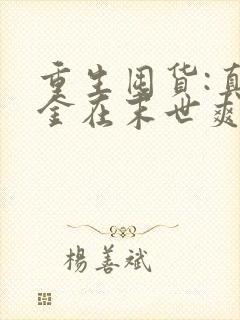 重生囤货:真
金在末世爽
楊善斌